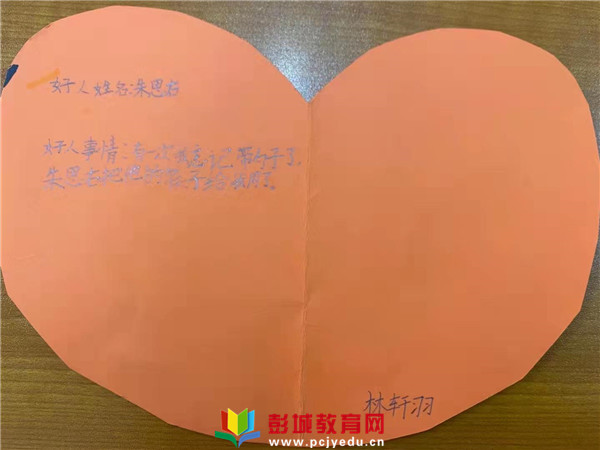 好人姓名:朱思
好人事情:有一次我忘记带勺子了,
朱思 把他的 子给我用了。
林轩羽
彭城教育网
www.pcjyedu.cn